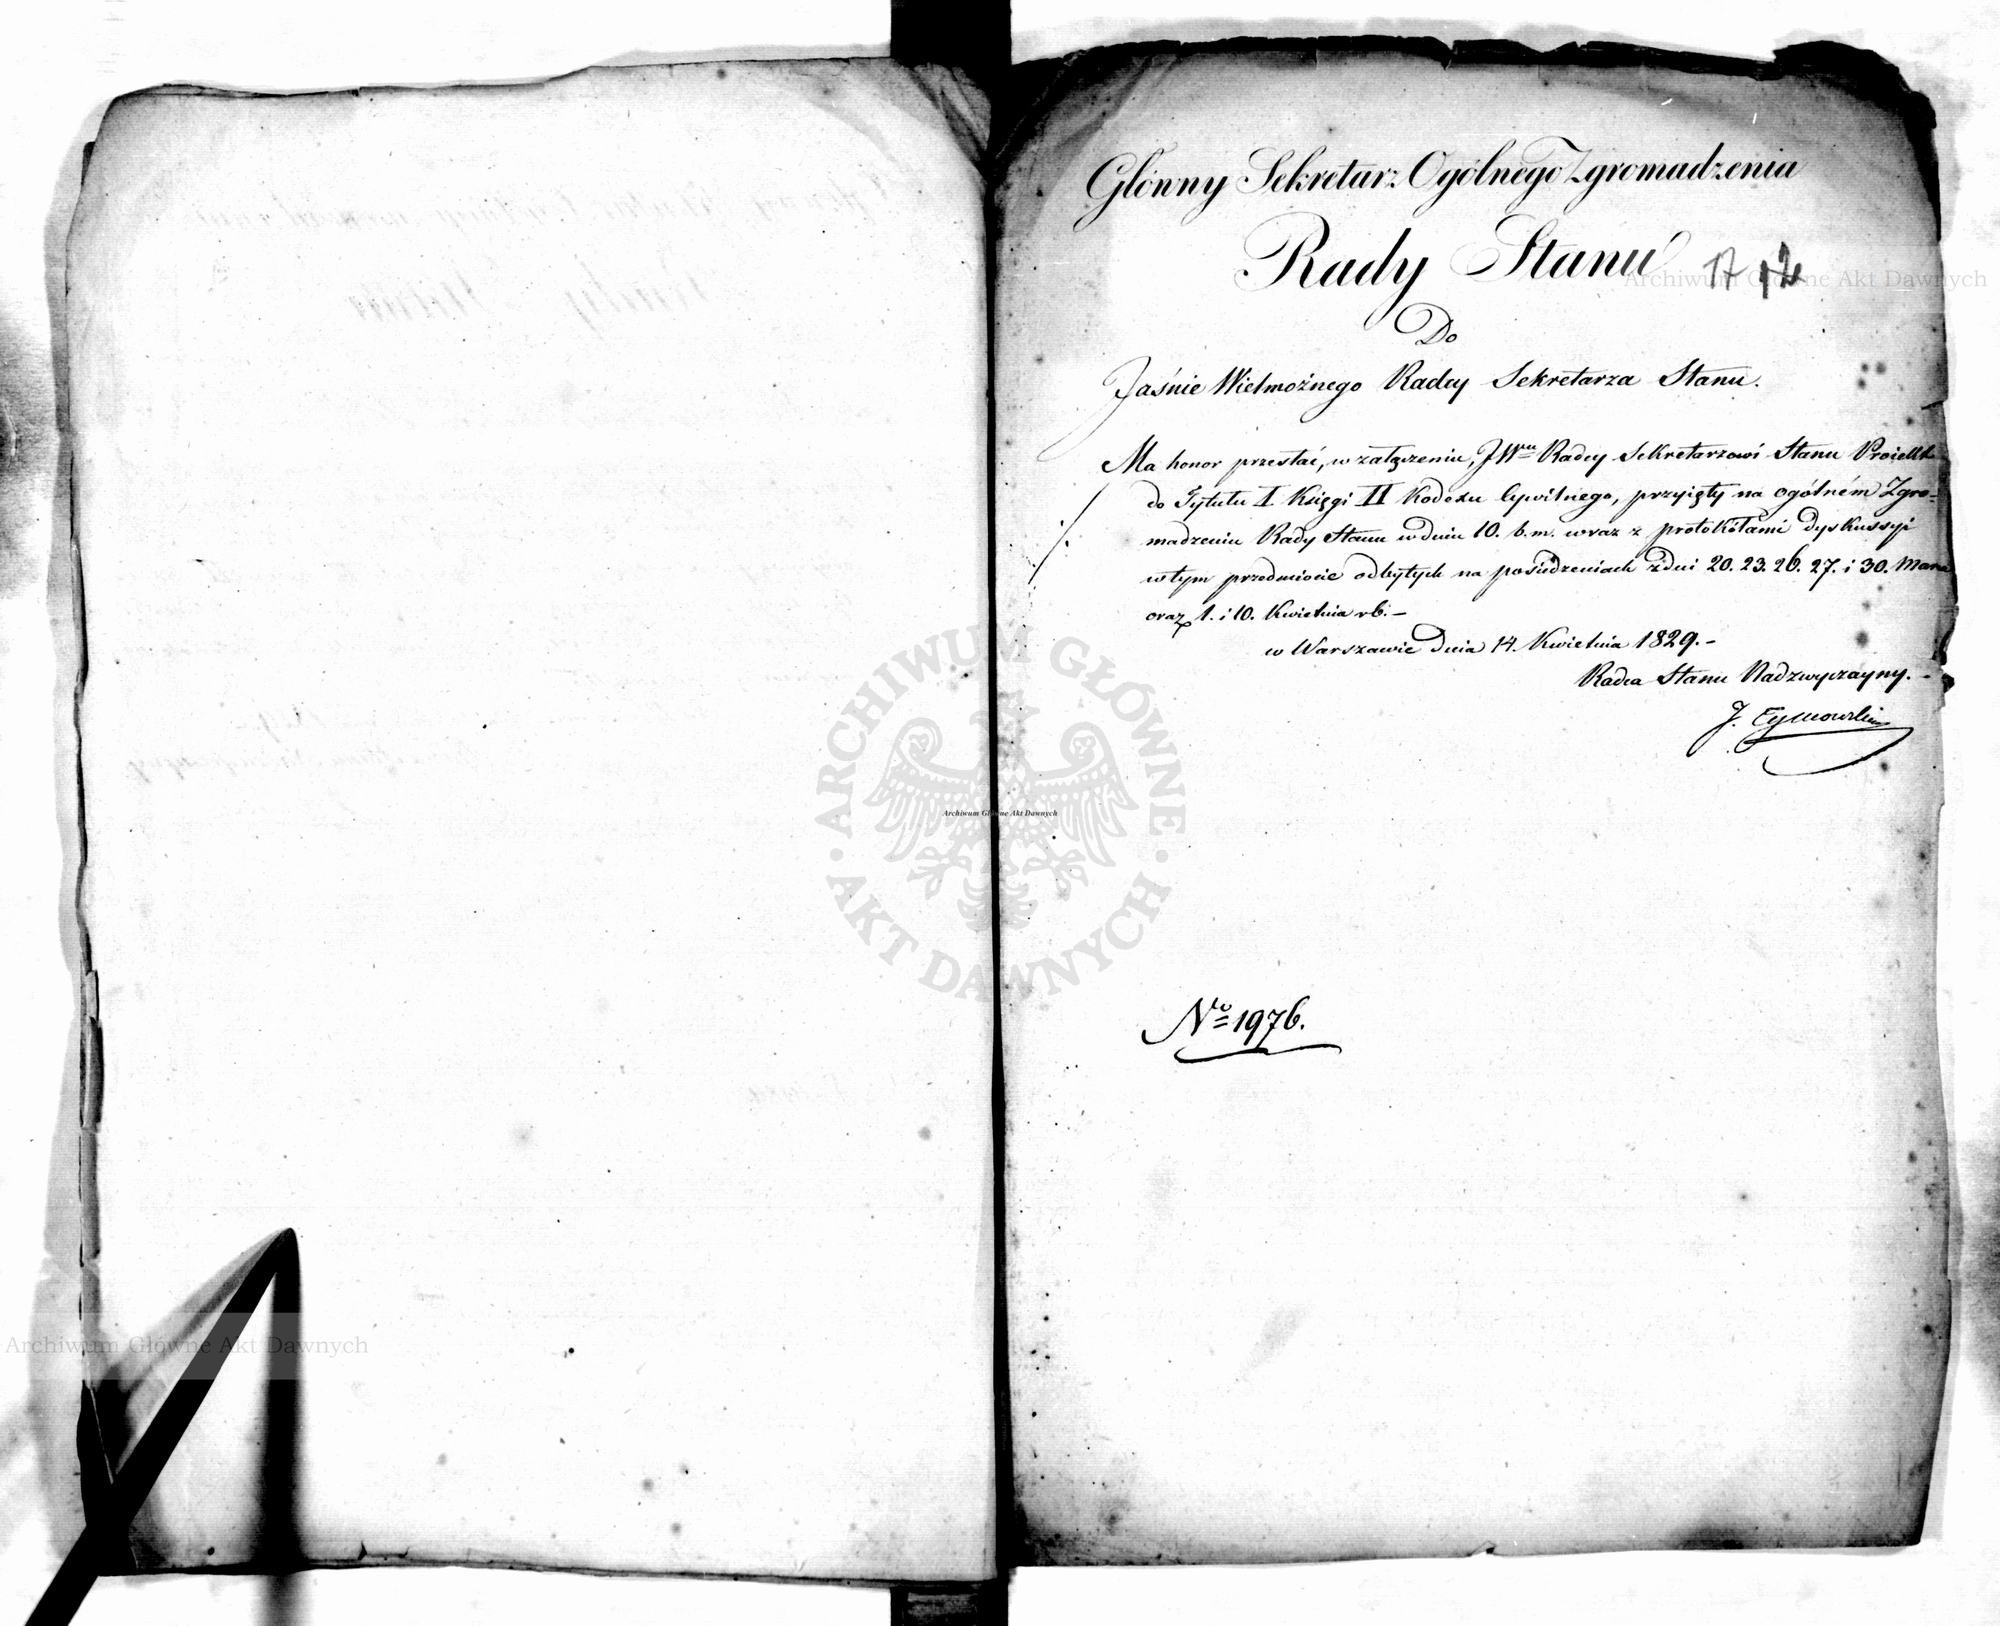 Główny Sekretarz Ogólnego Zgromadzenia
Rady Stanu
17 12
Do
Jaśnie Wielmożnego Radcy Sekretarza Stanu.
Ma honor przesłać, w załączeniu, JWmu Radcy Sekretarzowi Stanu Proiekt
do Tytułu I Księgi II Kodexu Cywilnego, przyięty na ogólném Zgro-
madzeniu Rady Stanu w dniu 10. b. m. wraz z protokółami dyskussyi
w tym przedmiocie odbytych na posiedzeniach z dni 20. 23. 26. 27. i 30. Marca
oraz 1. i 10. Kwietnia r b. —
w Warszawie dnia 14. Kwietnia 1829. —
Radca Stanu Nadzwyczayny. —
J. Tymowski
No 1976.
ARCHIWUM GŁÓWNE AKT DAWNYCH
Archiwum Główne Akt Dawnych
Archiwum Główne Akt Dawnych
Archiwum Główne Akt Dawnych